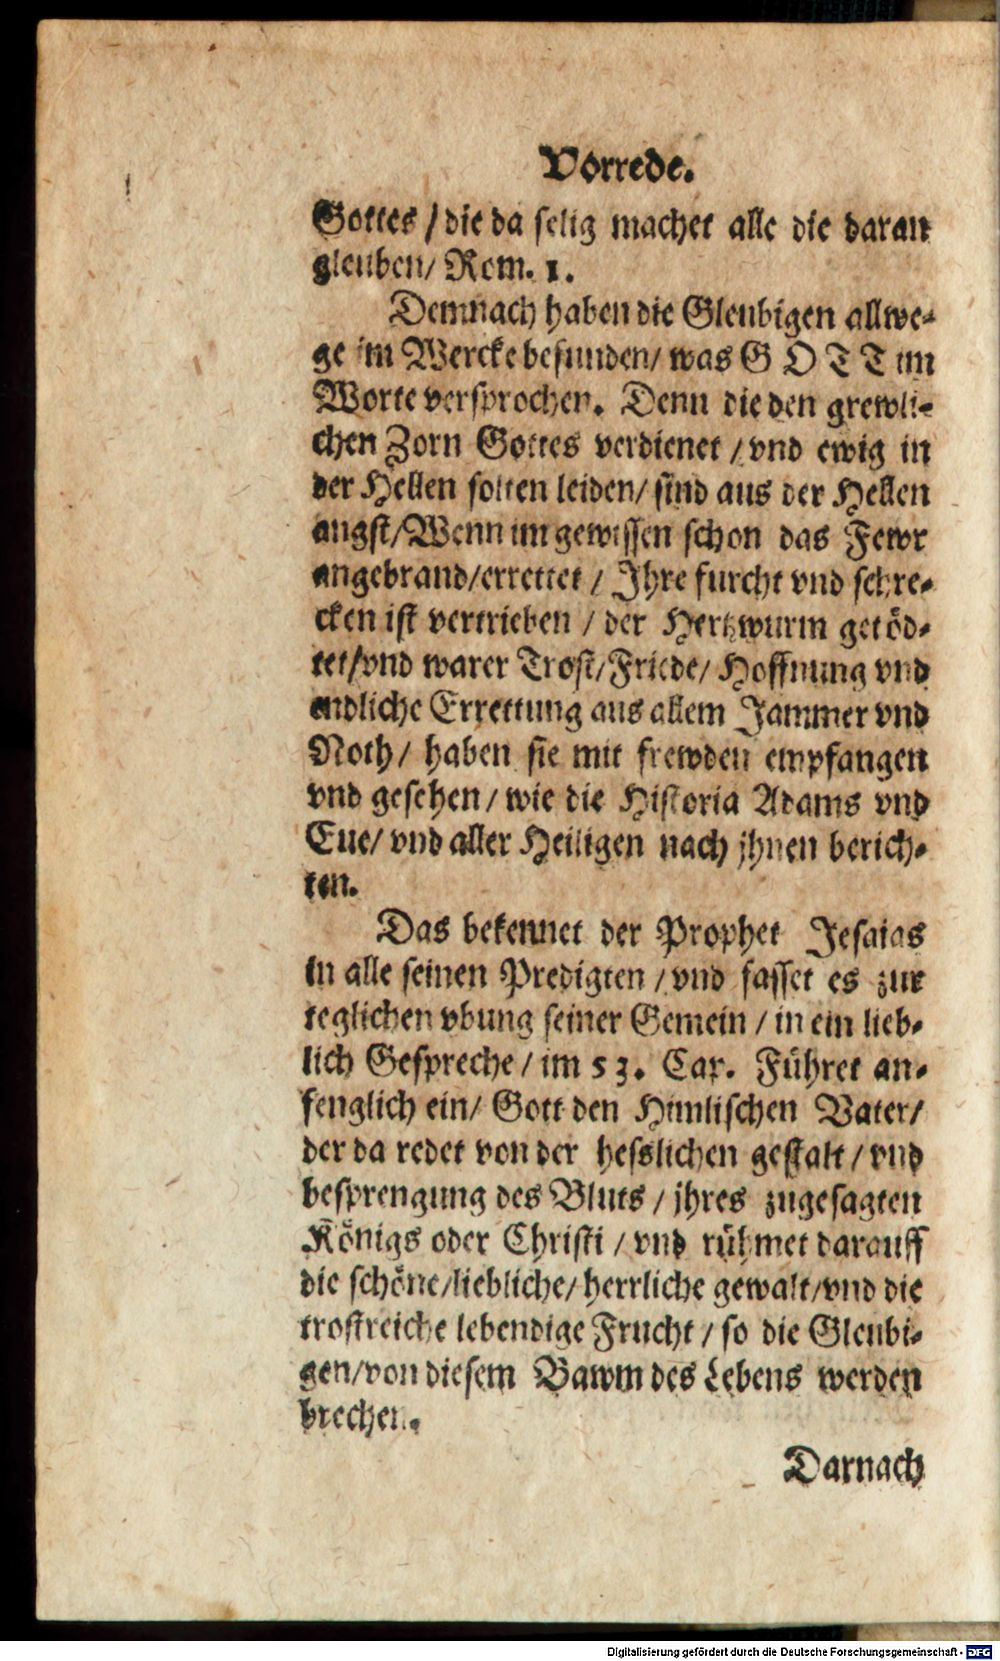 Vorrede.
Gottes / die da selig machet alle die daran
gleuben/ Rom. 1.
Demnach haben die Gleubigen allwe-
ge im Wercke befunden/ was G O T T im
Worte versprochen. Denn die den grewli-
chen Zorn Gottes verdienet / vnd ewig in
der Hellen solten leiden/ sind aus der Hellen
angst/Wenn im gewissen schon das Fewr
angebrand/errettet / Ihre furcht vnd schre-
cken ist vertrieben / der Hertzwurm getöd-
tet/vnd warer Trost/Friede/ Hoffnung vnd
endliche Errettung aus allem Jammer vnd
Noth/ haben sie mit frewden empfangen
vnd gesehen/ wie die Historia Adams vnd
Eue/ vnd aller Heiligen nach jhnen berich-
ten.
Das bekennet der Prophet Jesaias
in alle seinen Predigten / vnd fasset es zur
teglichen vbung seiner Gemein / in ein lieb-
lich Gespreche / im 53. Cap. Führet an-
fenglich ein/ Gott den Himlischen Vater/
der da redet von der hesslichen gestalt / vnd
besprengung des Bluts / jhres zugesagten
Königs oder Christi / vnd rühmet darauff
die schöne/liebliche/ herrliche gewalt/vnd die
trostreiche lebendige Frucht / so die Gleubi-
gen/von diesem Bawm des Lebens werden
brechen.
Darnach
Digitalisierung gefördert durch die Deutsche Forschungsgemeinschaft - DFG